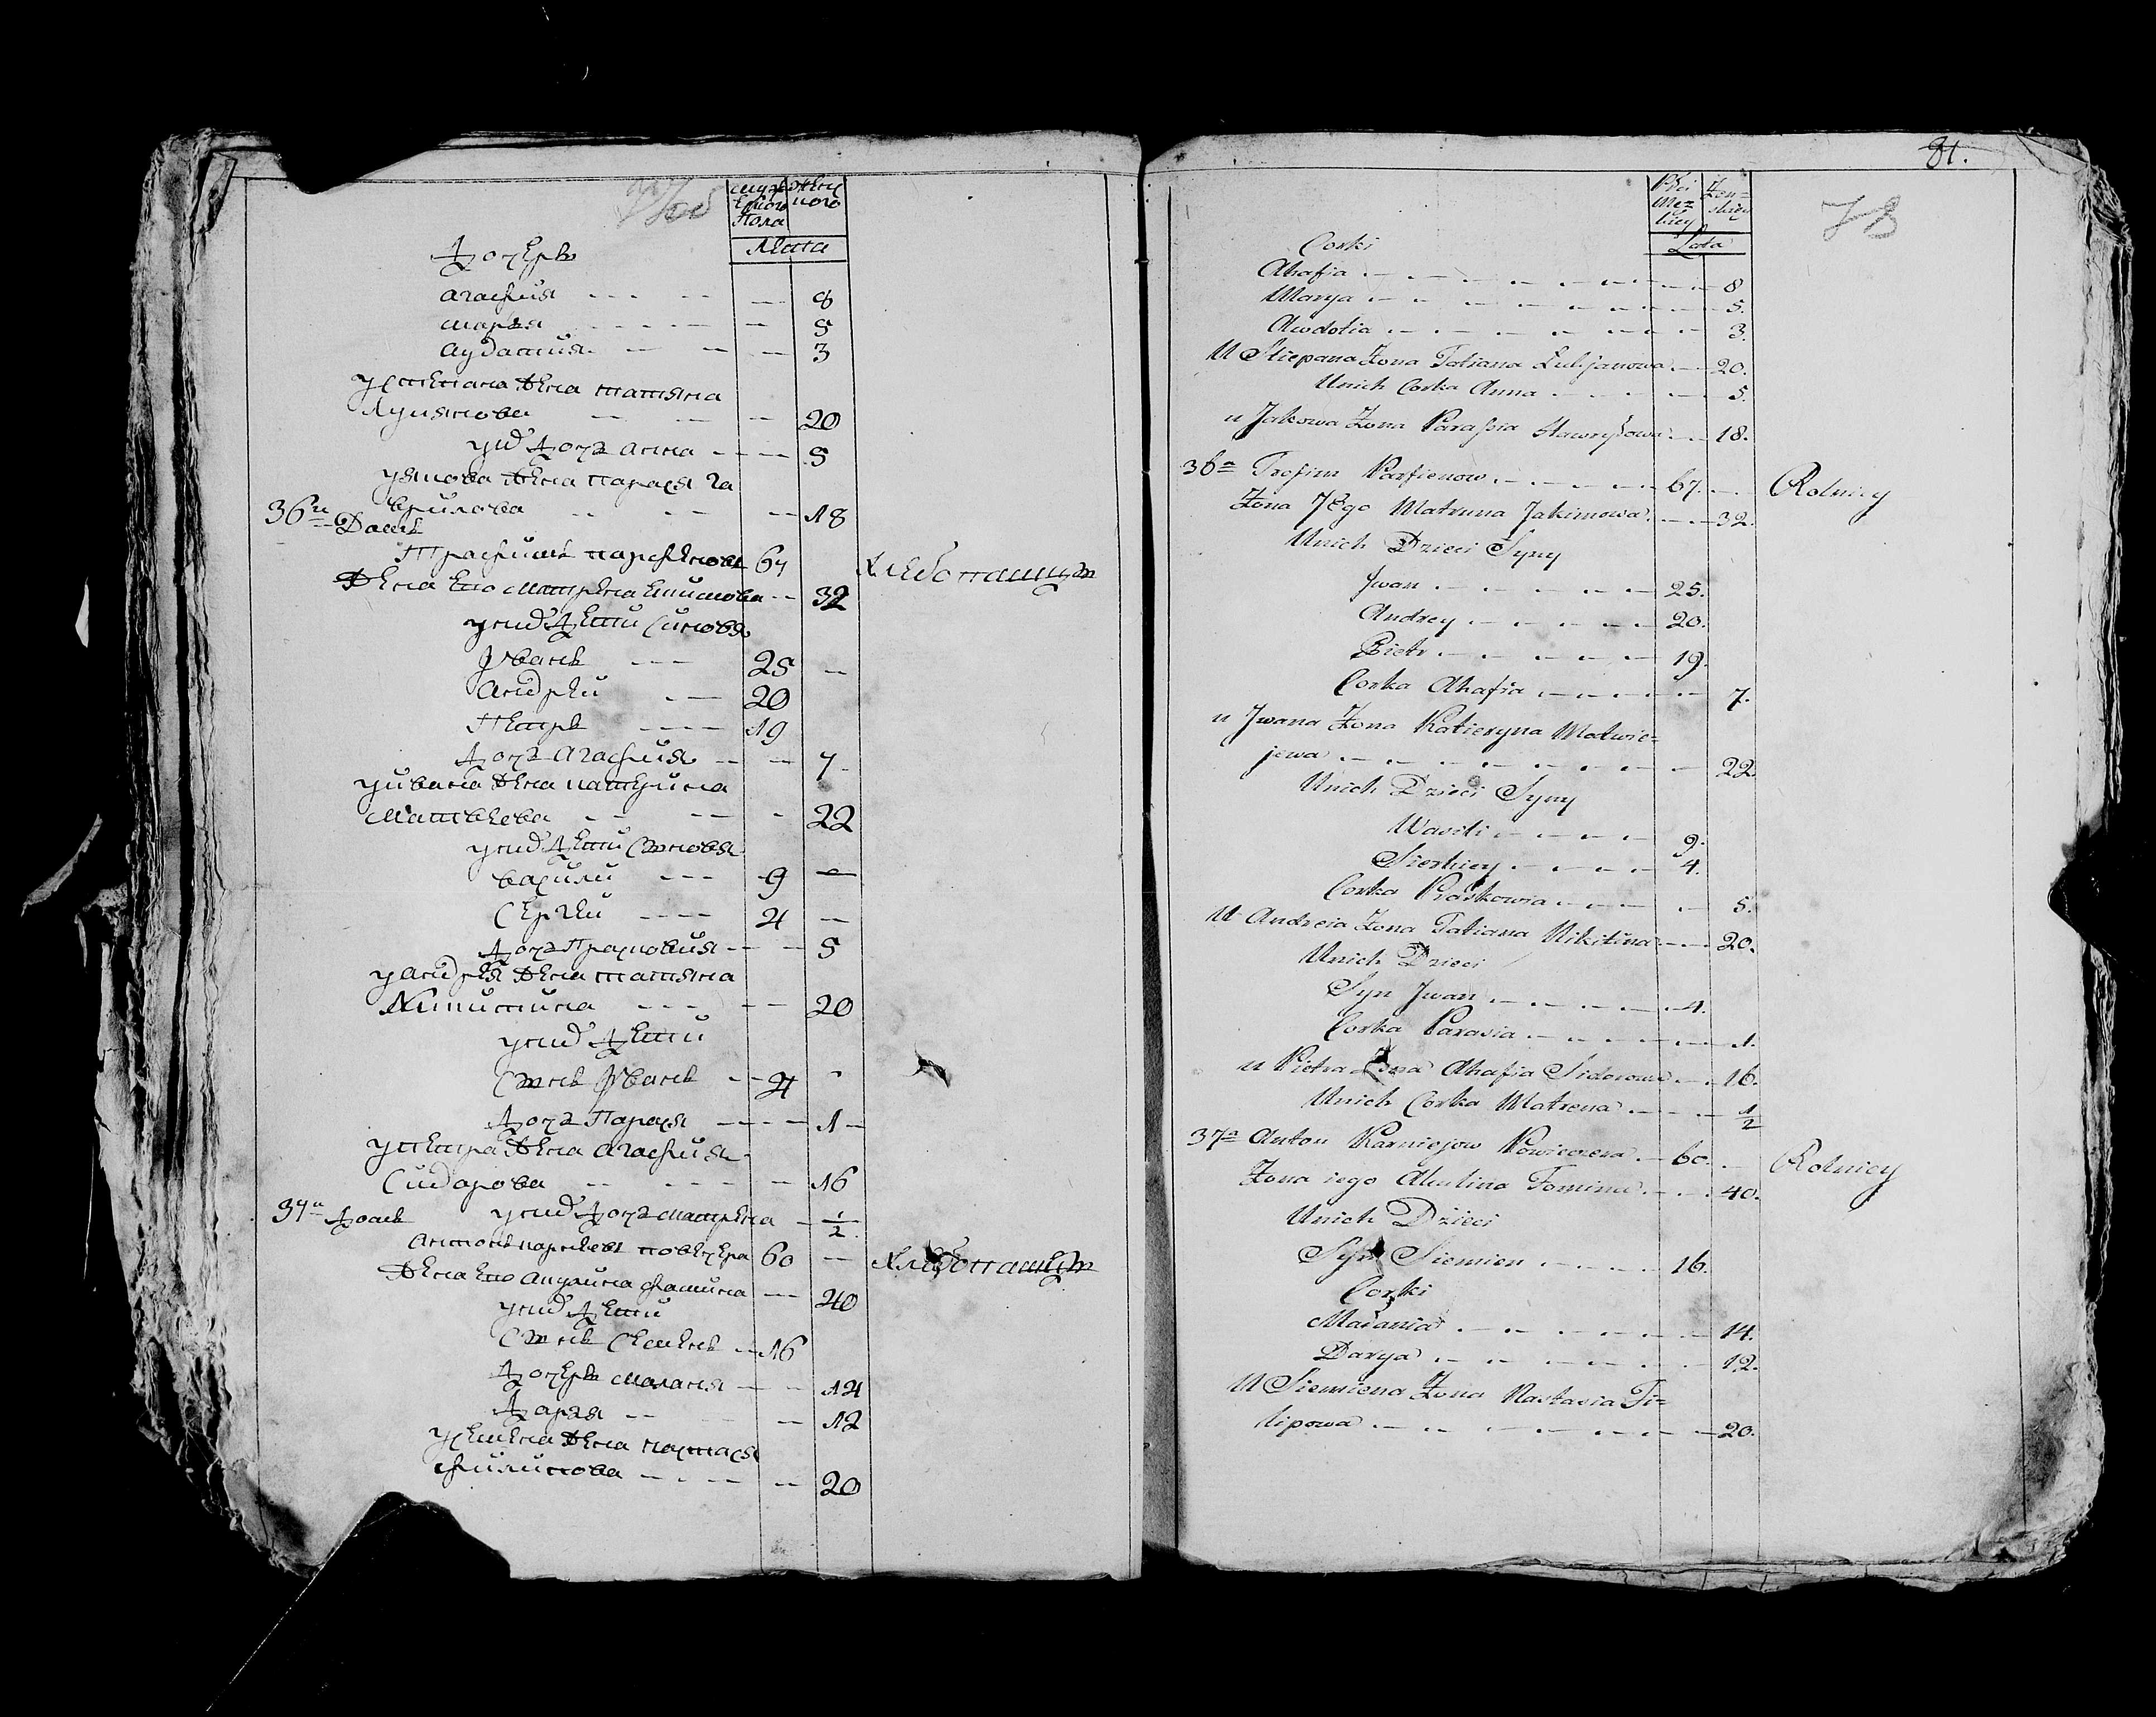 мужескаго пола
женскаго
Лета
Дочеръ
агафия 8
маръя 5
аудатия 3
устепана жена татяна
Лукянова 20
унихъ дочъ анна 5
уякова жена парася га
врилова 18
36й Домъ
Трафимъ парфеновъ 67 хлебопашцы
жена ево матрена екимова 32
унихъ дети синовя
Иванъ 25
андреи 20
Петръ 19
дочъ агафия 7
уивана жена катерина
Матвеева 22
унихъ дети сыновя
василии 9
Сергеи 4
дочъ Прасковия 5
уандрея жена татяна
Никитина 20
унихъ дети
Сынъ Иванъ 4
дочъ Парася 1
упетра жена агафия
Сидарова 16
37й домъ
унихъ дочъ матрена 1/2
антонъ карнеевъ повечера 60 хлебопашцы
жена ево акулина фамина 40
унихъ дети
Сынъ Семенъ 16
дочеръ маланя 14
даря 12
усемена жена настася
филипова 20
81.
78
Płci Męz kiey
Zen= skiey
Lata
Corki
Ahafia 8
Marya 5.
Awdotia 3.
U Stiepana Zona Tatiana Łukjanowa 20.
Unich Corka Anna 5.
u Jakowa Zona Parasia Hawryłowa 18.
36a Trofim Parfienow 67. Rolnicy
Zona Jego Matruna Jakimowa 32.
Unich Dzieci Syny
Jwan 25.
Andrey 20.
Pietr 19.
Corka Ahafia 7.
u Jwana Zona Katieryna Matwie=
jewa 22.
Unich Dzieci Syny
Wasili 9.
Sierhiey 4.
Corka Praskowia 5.
U Andreia Zona Tatiana Nikitina 20.
Unich Dzieci
Syn Jwan 4.
Corka Parasia 1.
u Pietra Zona Ahafia Sidorowa 16.
Unich Corka Matrona 1/2
37a Anton Karniejow Powieczera 60. Rolnicy
Zona iego Akulina Fomina 40.
Unich Dzieci
Syn Siemien 16.
Corki
Małania 14.
Darya 12.
U Siemiena Zona Nastasia Fi=
lipowa 20.